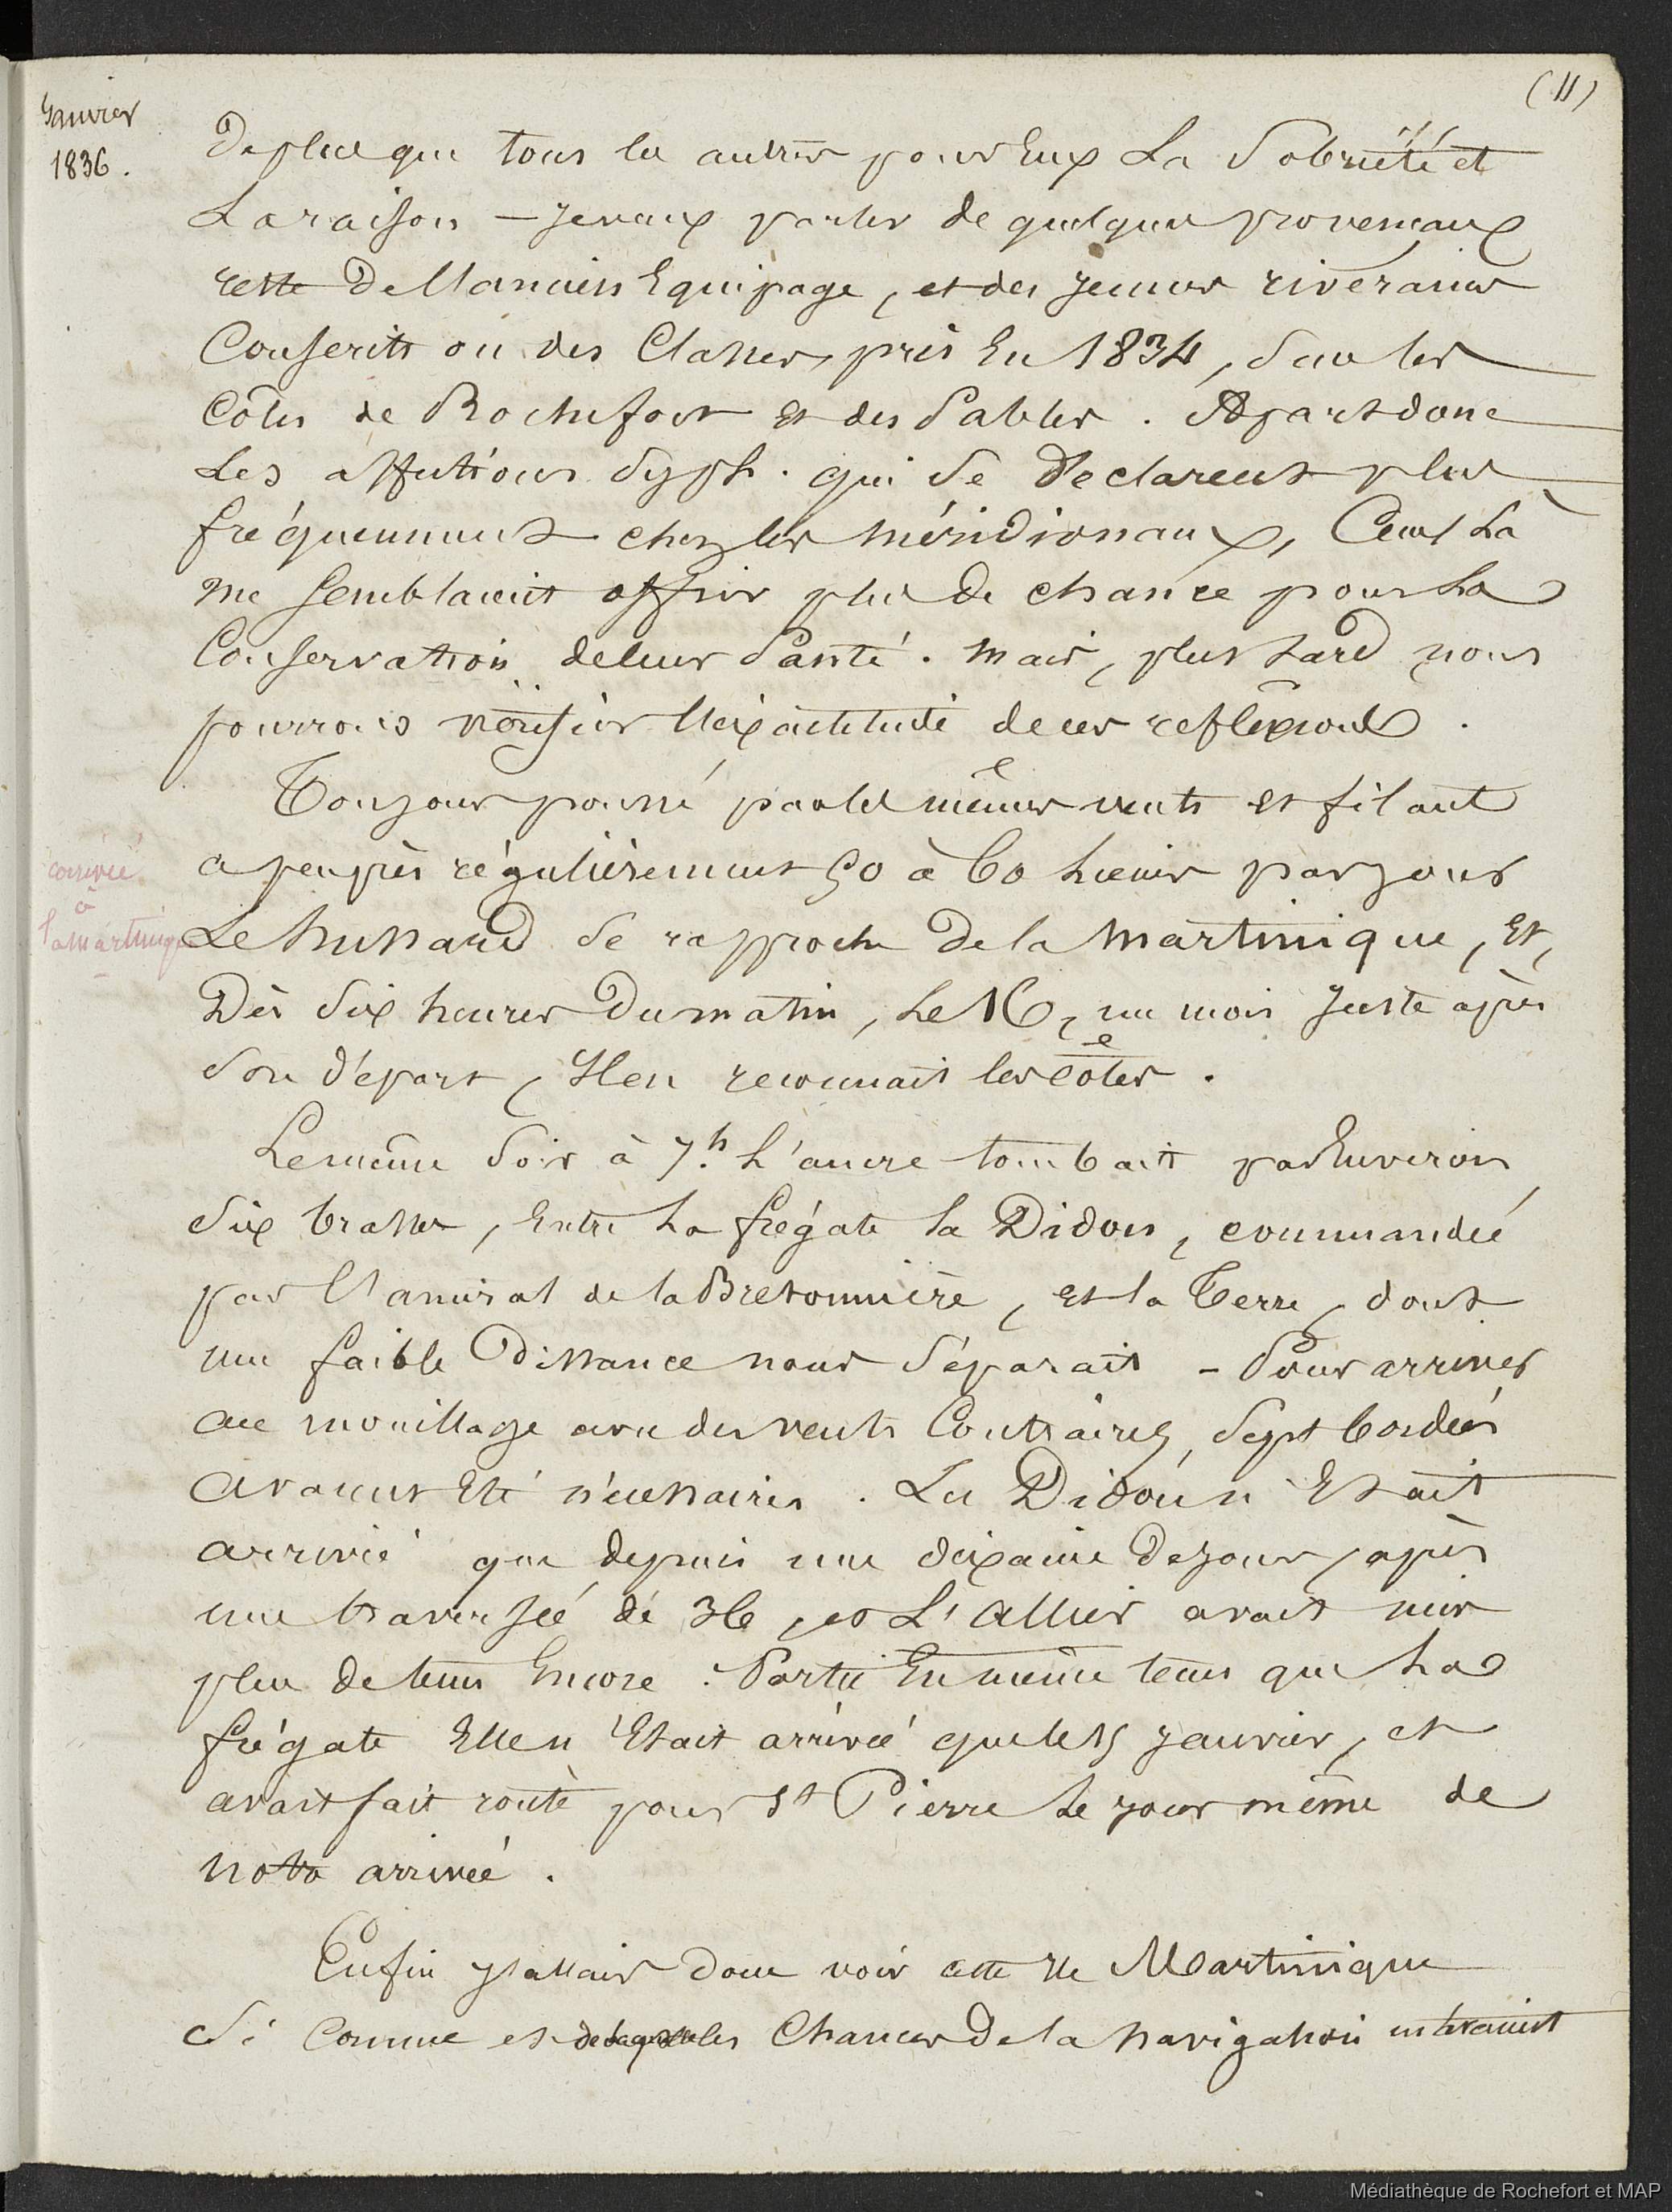 (11)
Janvier
1836.
De plus que tous les autres pour Eux La Sobriété et
La raison — Je veux parler de quelques provencaux
reste De l'ancien Equipage, et des jeunes riverains
Conscrits ou des Classes, pris En 1834, Sur les
Côtes de Rochefort et des Sables. Apart donc
Les affections Syph. qui Se Declarent plus
fréquemment chez les méridionaux, Ceux Là
me Semblaient offrir plus De chance pour La
Conservation de leur Santé. Mais, plus tard nous
pourrons vérifier l'exactitude de ces reflexions.
Toujours poussé par les mêmes vents et filant
a peu près régulièrement 50 à 60 Lieues par jour
arrivée
à
la martinique
Le hussard Se rapproche De la Martinique, Et,
Dès Six heures Du matin, Le 16, un mois Juste après
Son départ, Il en reconnait les côtes.
Le même Soir à 7.h L'ancre tombait par Environ
Six brasses, Entre La frégate la Didon, commandée
par l'amiral de la Bretonnière, et la Terre, dont
une faible Distance nous Séparait — Pour arriver
au mouillage avec des vents Contraires, Sept bordées
avaient Eté nécessaires. La Didon n'Etait
arrivée que depuis une dixaine De jours, après
une traversée de 36, et L'Allier avait mis
plus de tems Encore. Partie En même tems que La
frégate Elle n'Etait arrivée que le 15 Janvier, et
avait fait route pour St Pierre Le jour même de
notre arrivée.
Enfin J'allais Donc voir cette Ile Martinique
Si Connue et de laquelle les Chances De la navigation m'avaient
Médiathèque de Rochefort et MAP